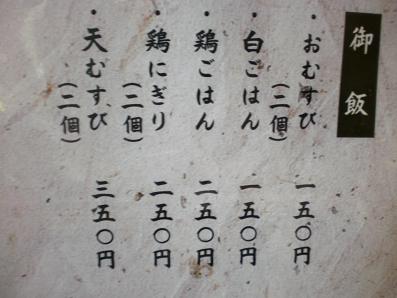 御飯
・おむすび(二個) 一五〇円
・白ごはん 一五〇円
・鶏ごはん 二五〇円
・鶏にぎり(二個) 二五〇円
・天むすび(二個) 三五〇円